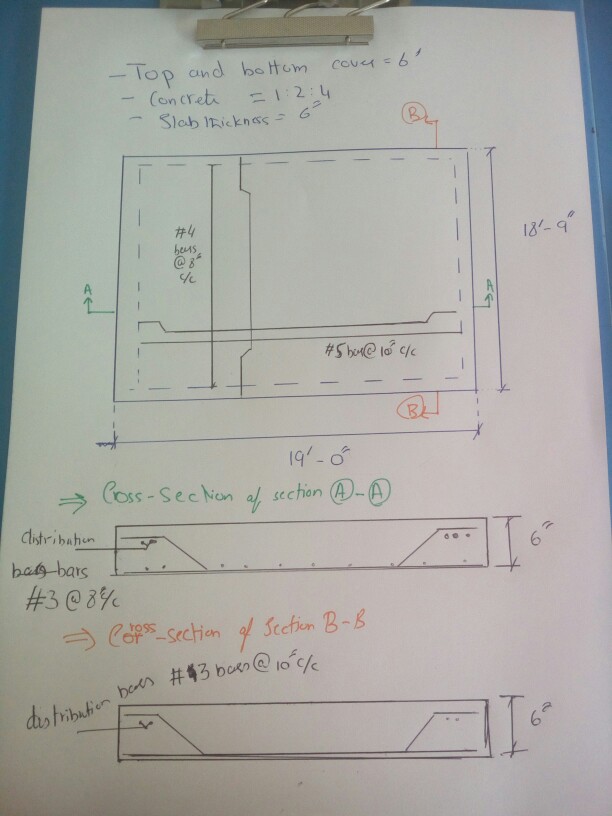 - Top and bottom cover = 6"
- Concrete = 1:2:4
- Slab thickness = 6"
B
18'-9"
#4
bars
@ 8"
c/c
A
A
#5 bar@10" c/c
B
19'-0"
⇒ Cross-Section of section A-A
distribution
bars
#3 @ 8"c/c
6"
⇒ Cross-section of Section B-B
distribution bars #3 bars@10"c/c
6"